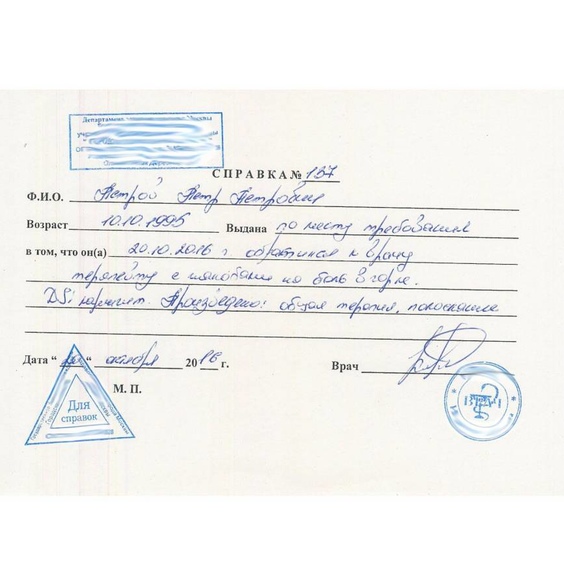 Департамент Москвы
СПРАВКА № 137
Ф.И.О. Петров Петр Петрович
Возраст 10.10.1995 Выдана по месту требования
в том, что он(а) 20.10.2016 г. обратился к врачу
терапевту с жалобами на боль в горле.
DS: ларингит. Произведено: общая терапия, полоскание
Дата " " октября 2016 г. Врач
М. П.
Для
справок
ВРАЧ